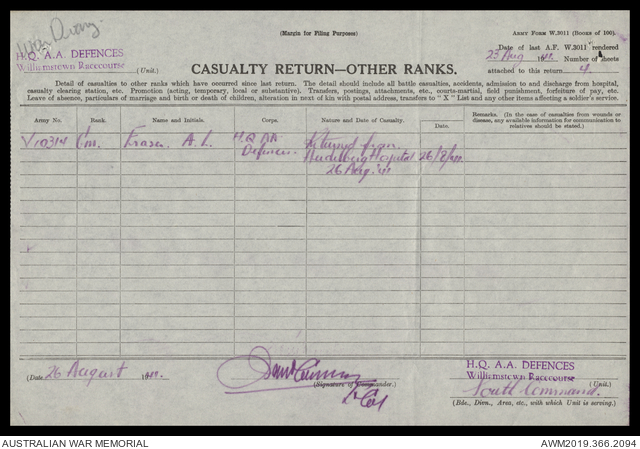 War Diary
(Margin for Filing Purposes)
ARMY FORM W.3011 (BOOKS OF 100).
H.Q. A.A. DEFENCES
Williamstown Racecourse
(Unit.)
Date of last A.F. W.3011 rendered
23 Aug
Number of sheets
attached to this return 4
CASUALTY RETURN—OTHER RANKS.
Detail of casualties to other ranks which have occurred since last return. The detail should include all battle casualties, accidents, admission to and discharge from hospital,
casualty clearing station, etc. Promotion (acting, temporary, local or substantive). Transfers, postings, attachments, etc., courts-martial, field punishment, forfeiture of pay, etc.
Leave of absence, particulars of marriage and birth or death of children, alteration in next of kin with postal address, transfers to "X" List and any other items affecting a soldier's service.
Army No. Rank. Name and Initials. Corps. Nature and Date of Casualty. Remarks. (In the case of casualties from wounds or
disease, any available information for communication to
relatives should be stated.)
V10314 Gnr. Fraser. A. L. H.Q AA Returned from
Defences Heidelberg Hospital
26 Aug.
(Date 26 August
(Signature of Commander.)
Lt Col
H.Q. A.A. DEFENCES
Williamstown Racecourse
(Unit.)
South Command.
(Bde., Divn., Area, etc., with which Unit is serving.)
AUSTRALIAN WAR MEMORIAL
AWM2019.366.2094